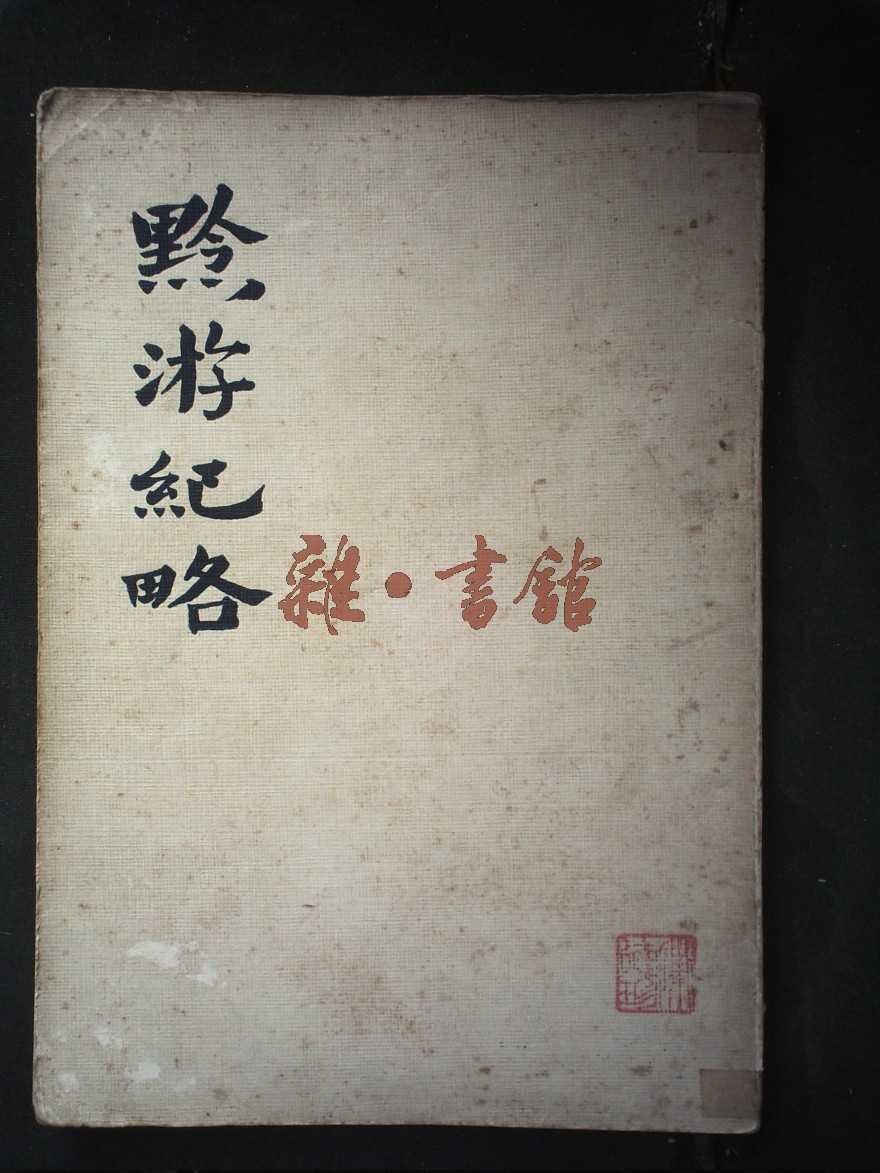 黔游紀略
雜·書館